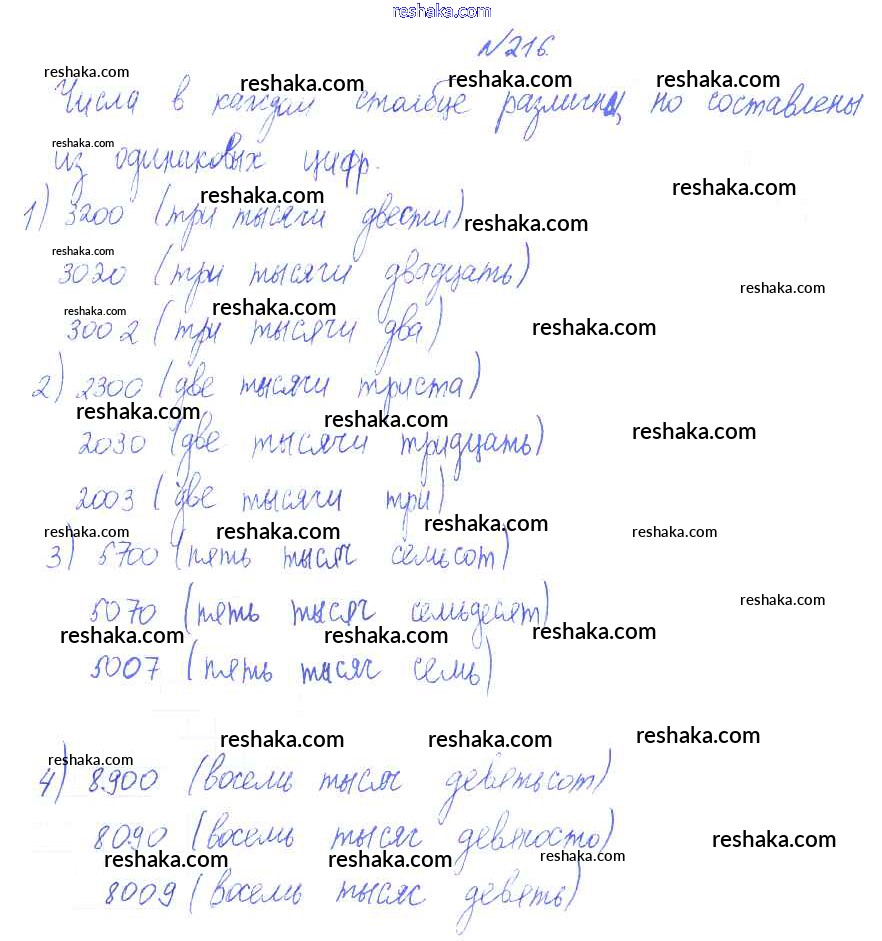 reshaka.com
№216.
reshaka.com
reshaka.com reshaka.com reshaka.com
Числа в каждом столбце различны, но составлены
reshaka.com
из одинаковых цифр.
reshaka.com reshaka.com
1) 3200 (три тысячи двести)
reshaka.com
reshaka.com
3020 (три тысячи двадцать)
reshaka.com
reshaka.com reshaka.com
3002 (три тысячи два)
reshaka.com
2) 2300 (две тысячи триста)
reshaka.com reshaka.com reshaka.com
2030 (две тысячи тридцать)
2003 (две тысячи три)
reshaka.com reshaka.com reshaka.com reshaka.com
3) 5700 (пять тысяч семьсот)
reshaka.com
5070 (пять тысяч семьдесят)
reshaka.com reshaka.com reshaka.com
5007 (пять тысяч семь)
reshaka.com reshaka.com reshaka.com
reshaka.com
4) 8900 (восемь тысяч девятьсот)
8090 (восемь тысяч девяносто)
reshaka.com
reshaka.com reshaka.com reshaka.com
8009 (восемь тысяч девять)